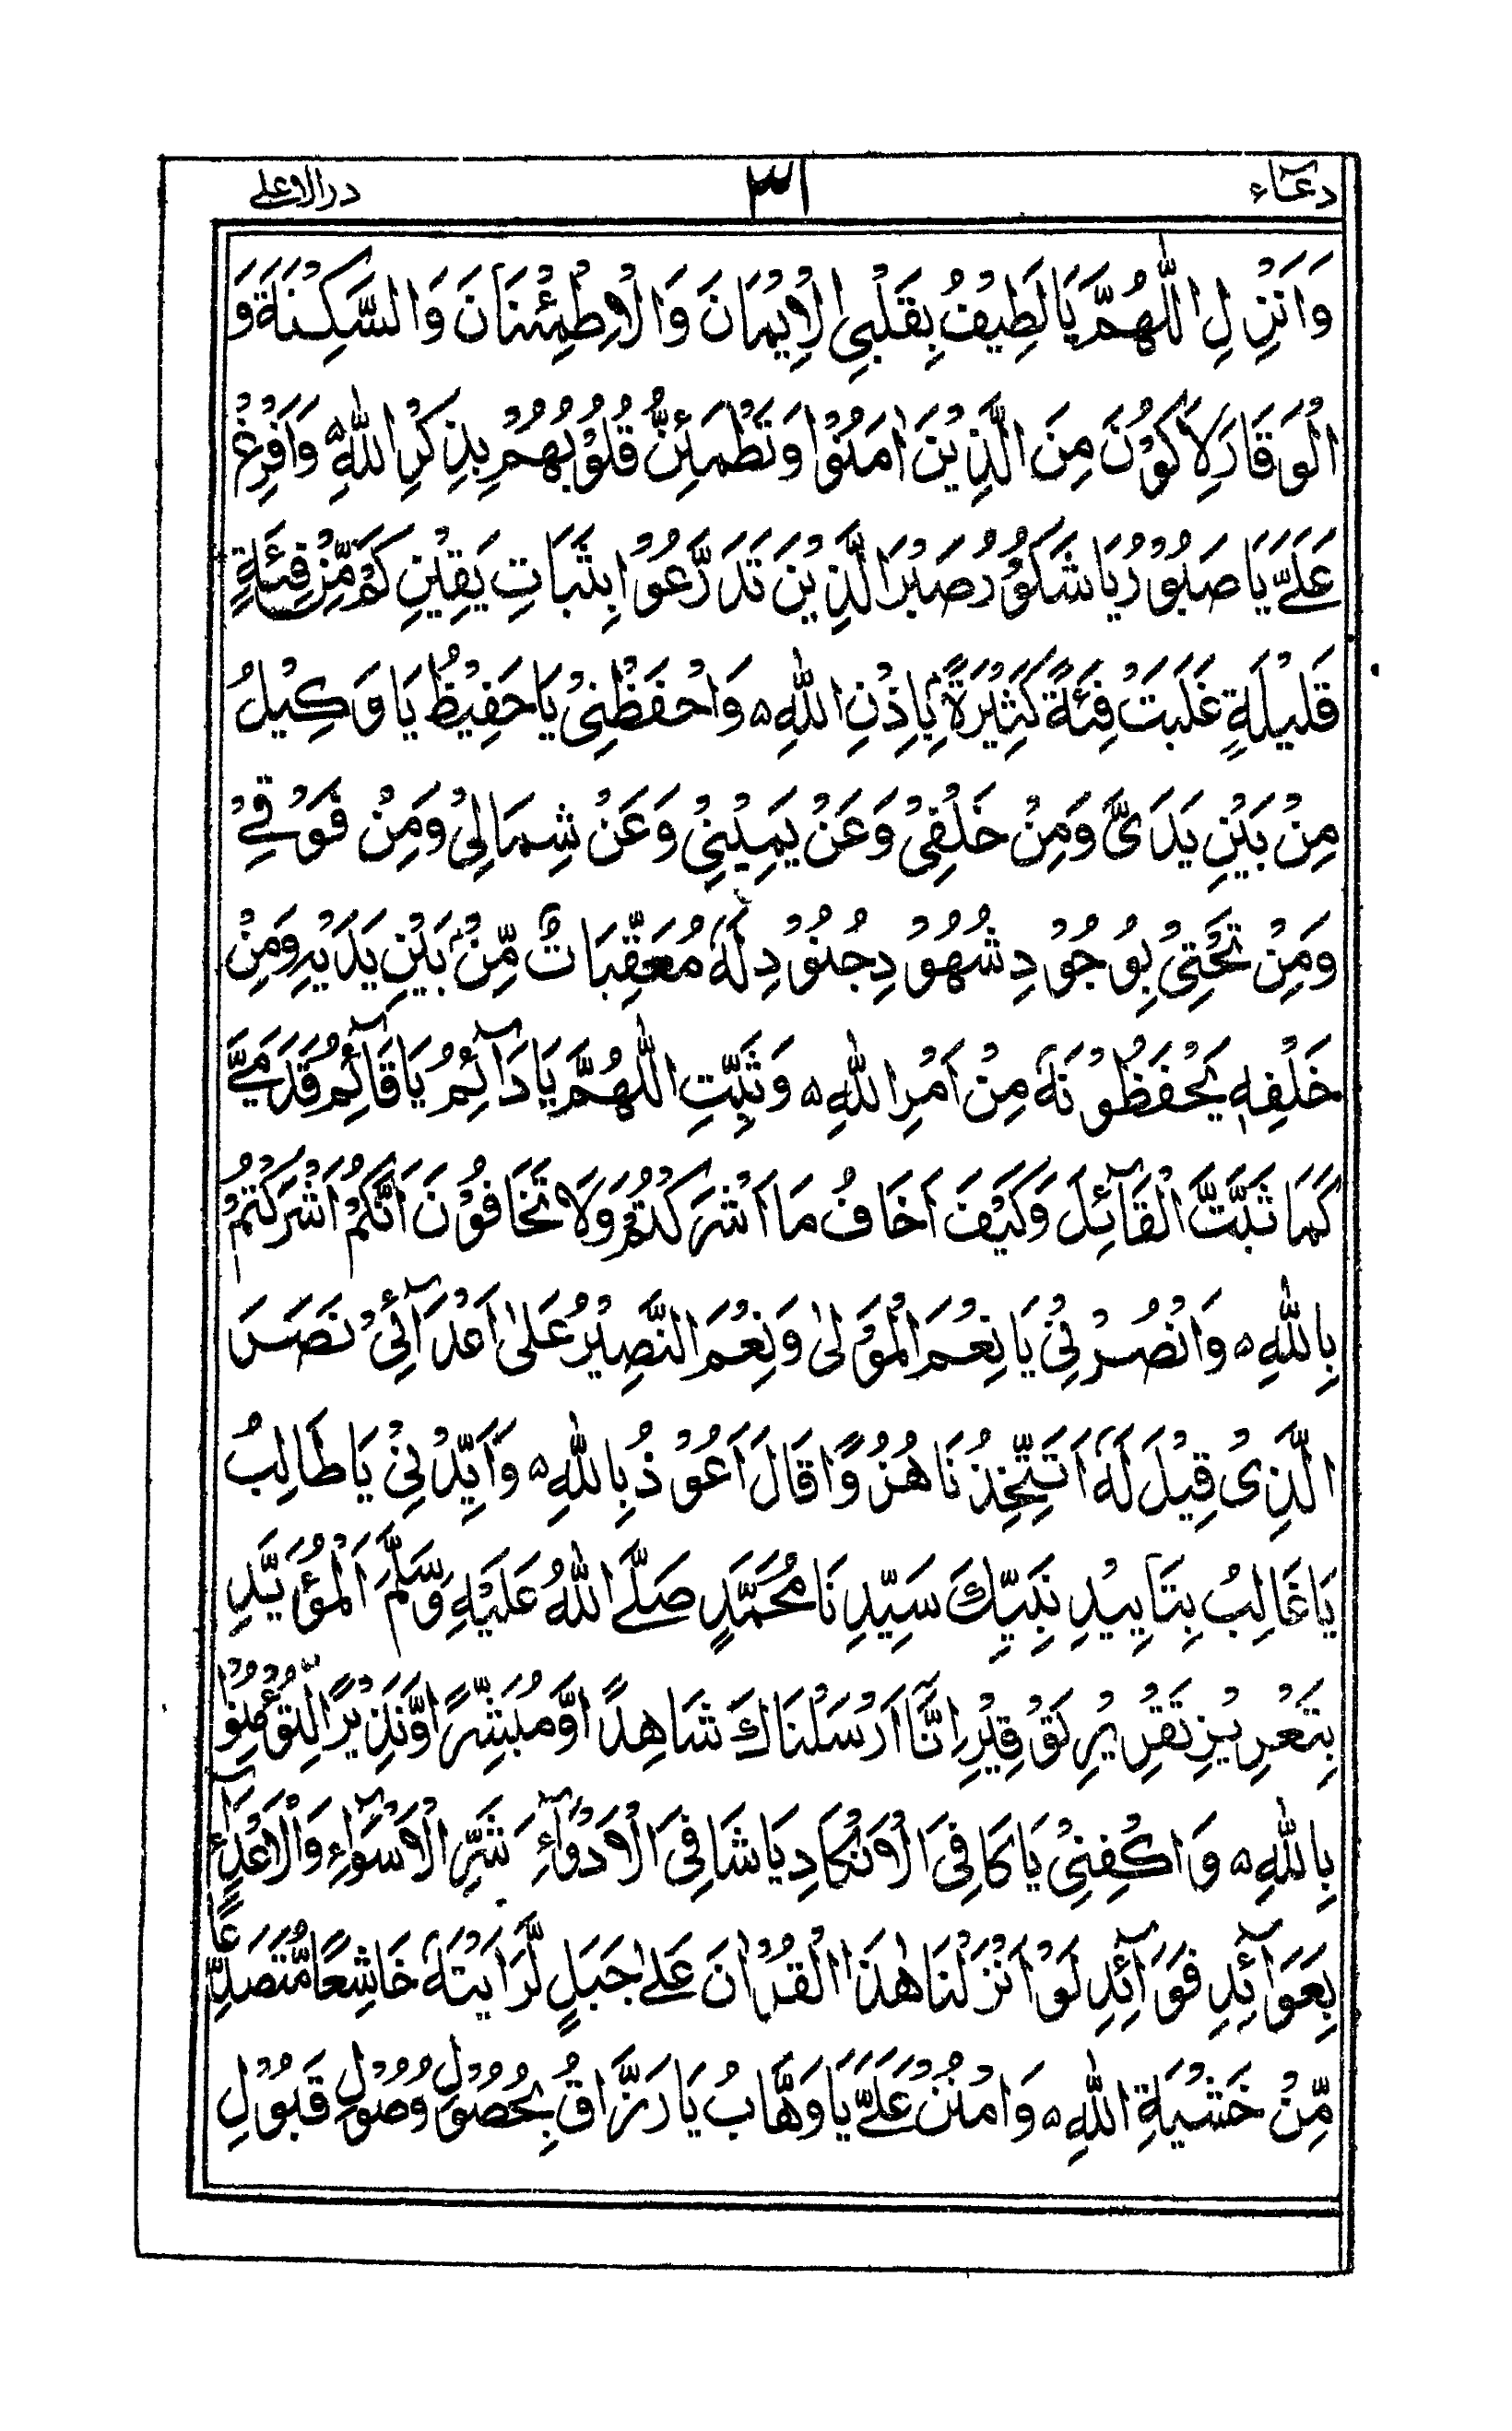 دعآء ٣١ درالاعلے
وَاَنْزِلِ اللّٰهُمَّ يَا لَطِيْفُ بِقَلْبِىَ الْاِيْمَانَ وَالْاِطْمِئْنَانَ وَالسَّكِيْنَةَ وَ
الْوَقَارَ لِاَكُوْنَ مِنَ الَّذِيْنَ اٰمَنُوْا وَتَطْمَئِنُّ قُلُوْبُهُمْ بِذِكْرِ اللّٰهِ ۵ وَاَفْرِغْ
عَلَىَّ يَا صَبُوْرُ يَا شَكُوْرُ صَبْرَ الَّذِيْنَ تَدَرَّعُوْا بِثَبَاتِ يَقِيْنِ كَمْ مِّنْ فِئَةٍ
قَلِيْلَةٍ غَلَبَتْ فِئَةً كَثِيْرَةً بِاِذْنِ اللّٰهِ ۵ وَاحْفَظْنِىْ يَا حَفِيْظُ يَا وَكِيْلُ
مِنْ بَيْنِ يَدَىَّ وَمِنْ خَلْفِىْ وَعَنْ يَمِيْنِىْ وَعَنْ شِمَالِىْ وَمِنْ فَوْقِىْ
وَمِنْ تَحْتِىْ بِوُجُوْدِ شُهُوْدِ جُنُوْدِ لَهٗ مُعَقِّبَاتٌ مِّنْۢ بَيْنِ يَدَيْهِ وَمِنْ
خَلْفِهٖ يَحْفَظُوْنَهٗ مِنْ اَمْرِ اللّٰهِ ۵ وَثَبِّتِ اللّٰهُمَّ يَا دَآئِمُ يَا قَآئِمُ قَدَمَىَّ
كَمَا ثَبَّتَّ الْقَآئِلَ وَكَيْفَ اَخَافُ مَا اَشْرَكْتُمْ وَلَا تَخَافُوْنَ اَنَّكُمْ اَشْرَكْتُمْ
بِاللّٰهِ ۵ وَانْصُرْنِىْ يَا نِعْمَ الْمَوْلٰى وَنِعْمَ النَّصِيْرُ عَلٰى اَعْدَآئِىْ نَصْرَ
الَّذِىْ قِيْلَ لَهٗ اَتَتَّخِذُنَا هُزُوًا قَالَ اَعُوْذُ بِاللّٰهِ ۵ وَاَيِّدْنِىْ يَا طَالِبُ
يَا غَالِبُ بِتَايِيْدِ نَبِيِّكَ سَيِّدِنَا مُحَمَّدٍ صَلَّى اللّٰهُ عَلَيْهِ وَسَلَّمَ الْمُؤَيَّدِ
بِتَعْزِيْزِ تَقْرِيْرِ تَوْقِيْرِ اِنَّا اَرْسَلْنَاكَ شَاهِدًا وَّمُبَشِّرًا وَّنَذِيْرًا لِّتُؤْمِنُوْا
بِاللّٰهِ ۵ وَاكْفِنِىْ يَا كَافِىَ الْاَنْكَادِ يَا شَافِىَ الْاَدْوَآءِ شَرَّ الْاَسْوَآءِ وَالْاَعْدَآءِ
بِعَوَآئِدِ فَوَآئِدِ لَوْ اَنْزَلْنَا هٰذَا الْقُرْاٰنَ عَلٰى جَبَلٍ لَّرَاَيْتَهٗ خَاشِعًا مُّتَصَدِّعًا
مِّنْ خَشْيَةِ اللّٰهِ ۵ وَامْنُنْ عَلَىَّ يَا وَهَّابُ يَا رَزَّاقُ بِحُصُوْلِ وُصُوْلِ قَبُوْلِ